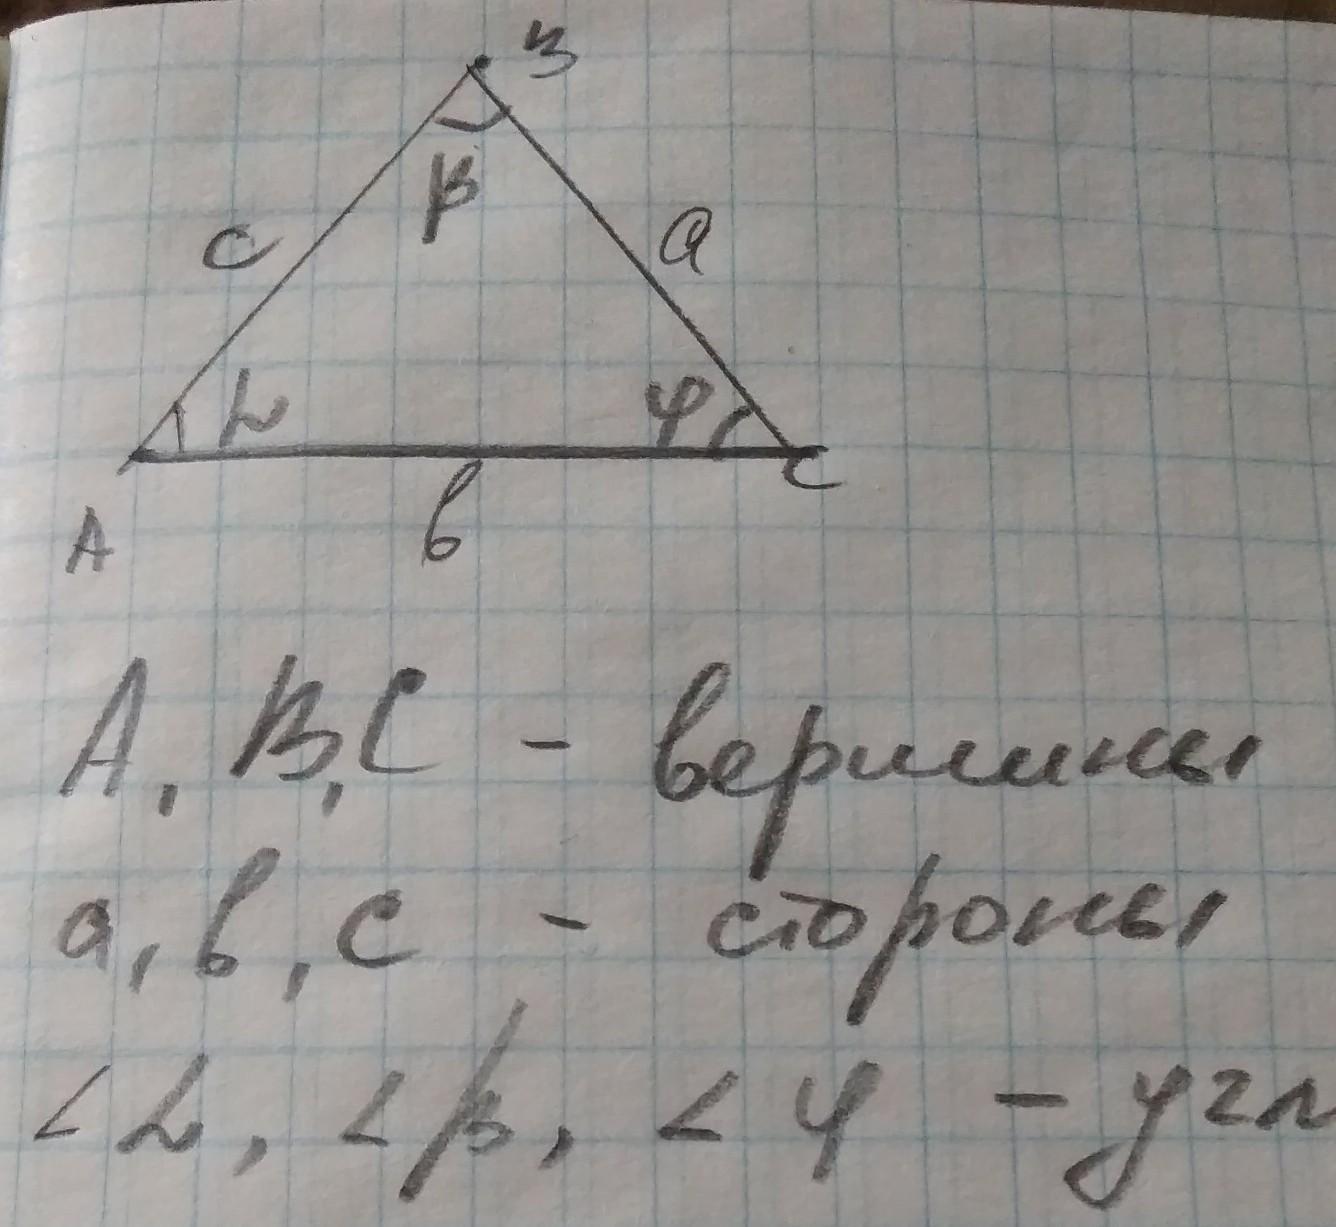 B
β
c
a
α
φ
C
A
b
A, B, C - вершины
a, b, c - стороны
∠α, ∠β, ∠φ - угл